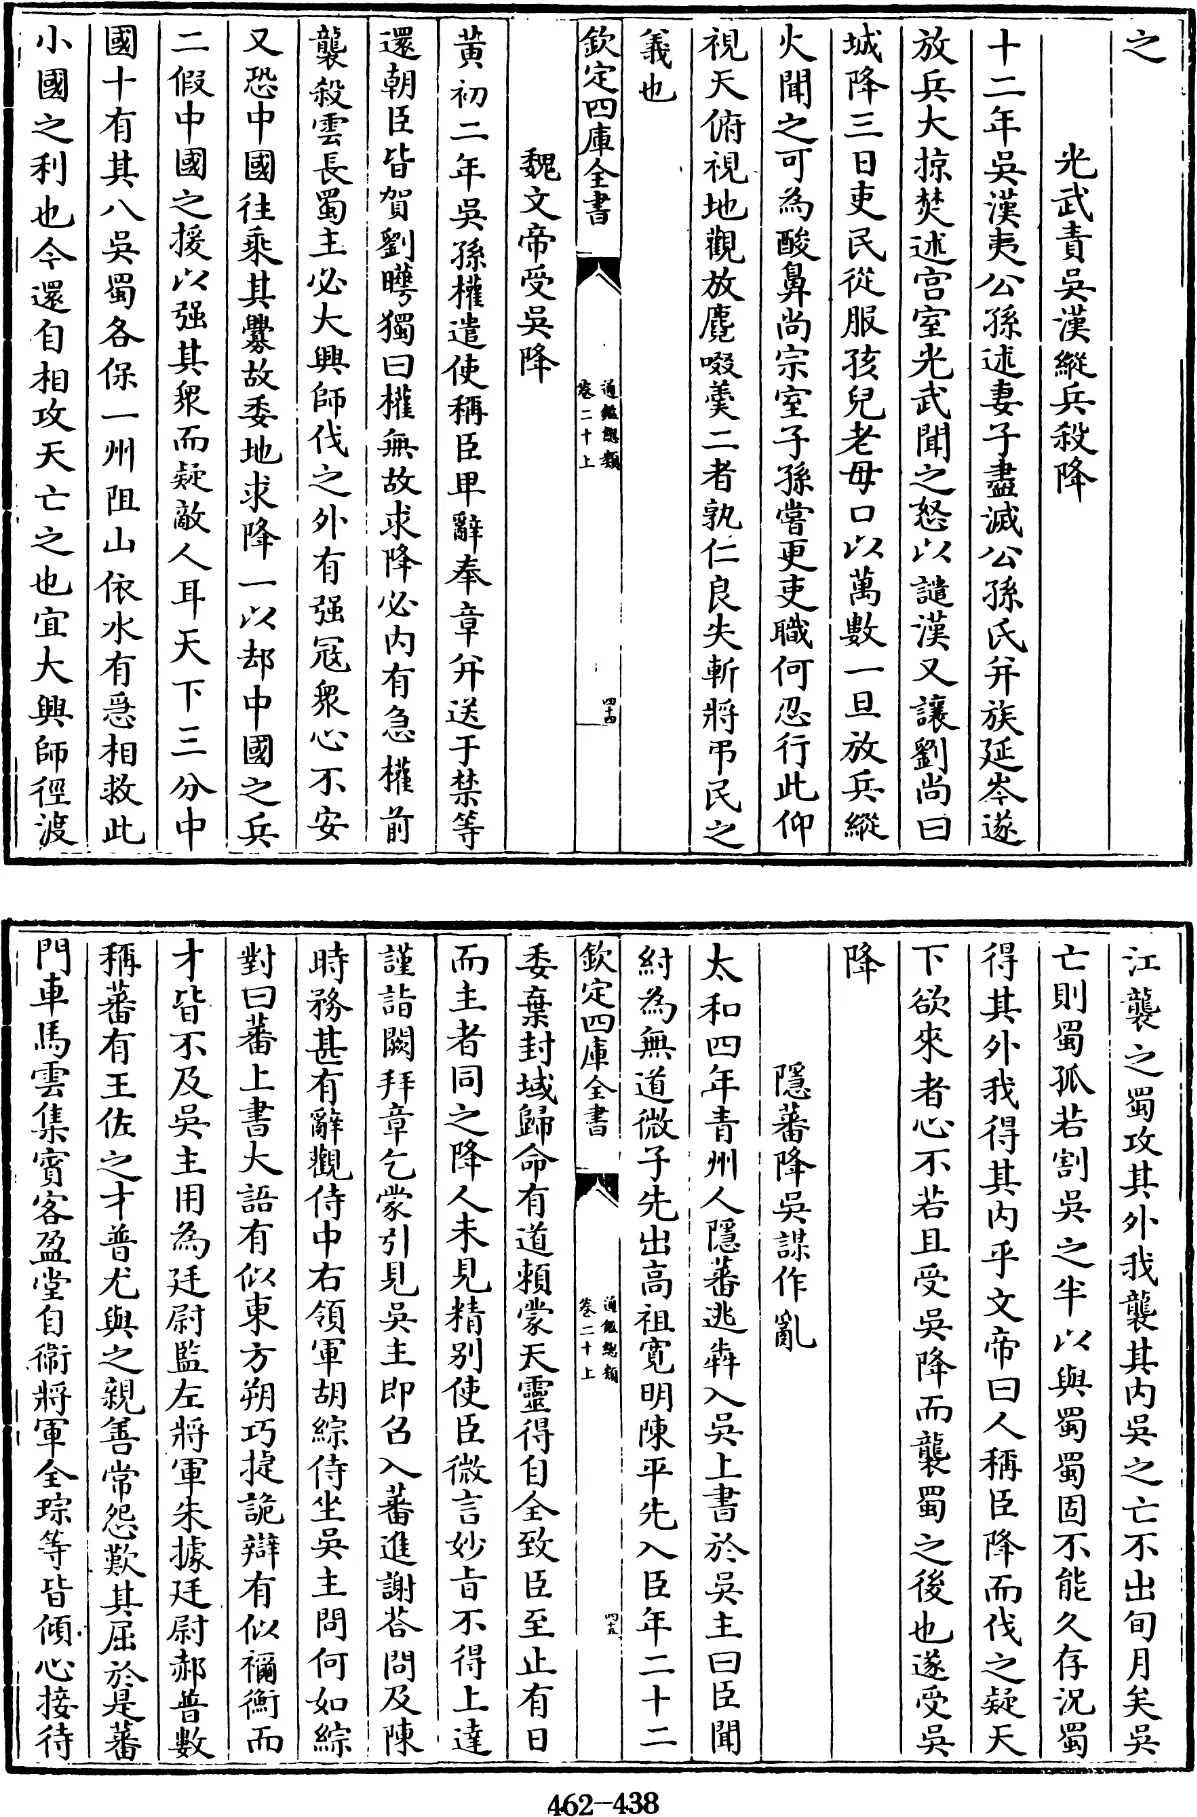 之
光武責吳漢縱兵殺降
十二年吳漢夷公孫述妻子盡滅公孫氏并族延岑遂
放兵大掠焚述宫室光武聞之怒以譴漢又讓劉尚曰
城降三日吏民從服孩兒老母口以萬數一旦放兵縱
火聞之可為酸鼻尚宗室子孫嘗更吏職何忍行此仰
視天俯視地觀放麑啜羮二者孰仁良失斬將弔民之
義也
欽定四庫全書
通鑑總類
卷二十上
四十四
魏文帝受吳降
黄初二年吳孫權遣使稱臣卑辭奉章并送于禁等
還朝臣皆賀劉曄獨曰權無故求降必内有急權前
襲殺雲長蜀主必大興師伐之外有强冦衆心不安
又恐中國往乘其釁故委地求降一以却中國之兵
二假中國之援以强其衆而疑敵人耳天下三分中
國十有其八吳蜀各保一州阻山依水有急相救此
小國之利也今還自相攻天亡之也宜大興師徑渡
江襲之蜀攻其外我襲其内吳之亡不出旬月矣吳
亡則蜀孤若割吳之半以與蜀蜀固不能久存況蜀
得其外我得其内乎文帝曰人稱臣降而伐之疑天
下欲來者心不若且受吳降而襲蜀之後也遂受吳
降
隱蕃降吳謀作亂
太和四年青州人隱蕃逃犇入吳上書於吳主曰臣聞
紂為無道微子先出高祖寛明陳平先入臣年二十二
欽定四庫全書
通鑑總類
卷二十上
四十五
委棄封域歸命有道頼蒙天靈得自全致臣至止有日
而主者同之降人未見精别使臣微言妙旨不得上達
謹詣闕拜章乞蒙引見吳主即召入蕃進謝荅問及陳
時務甚有辭觀侍中右領軍胡綜侍坐吳主問何如綜
對曰蕃上書大語有似東方朔巧捷詭辯有似禰衡而
才皆不及吳主用為廷尉監左將軍朱據廷尉郝普數
稱蕃有王佐之才普尤與之親善常怨歎其屈於是蕃
門車馬雲集賓客盈堂自衞將軍全琮等皆傾心接待
462-438